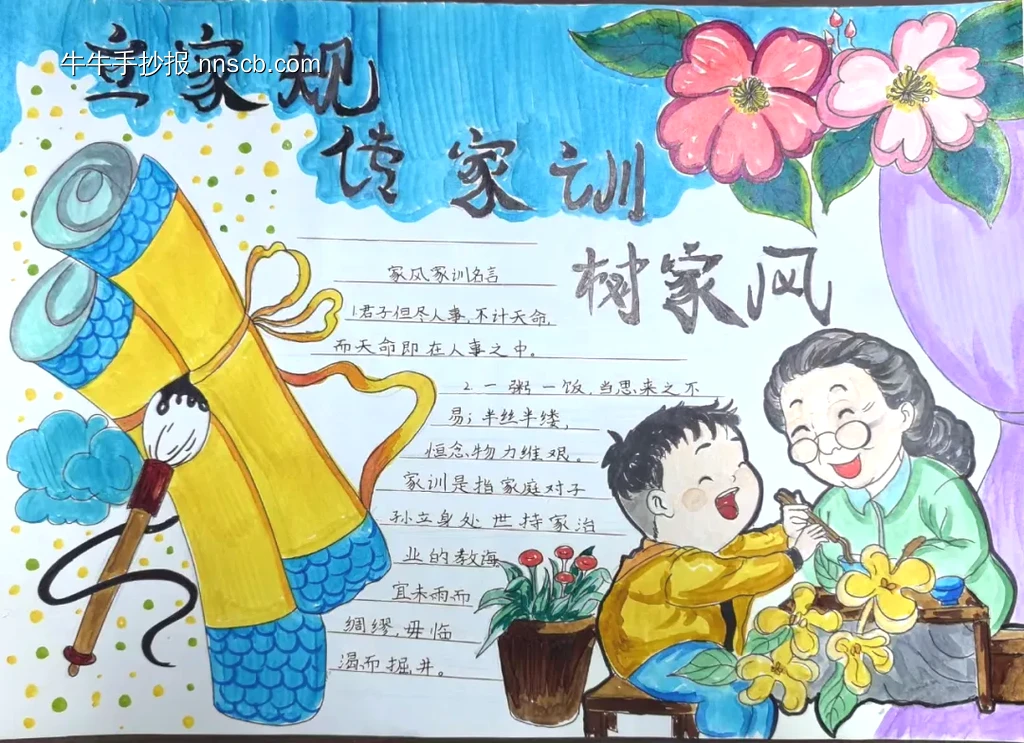 牛牛手抄报 nnscb.com
立家规
传家训
树家风
家风家训名言
1.君子但尽人事,不计天命,
而天命即在人事之中。
2.一粥一饭,当思来之不
易;半丝半缕,
恒念物力维艰。
家训是指家庭对子
孙立身处世持家治
业的教诲
宜未雨而
绸缪,毋临
渴而掘井。